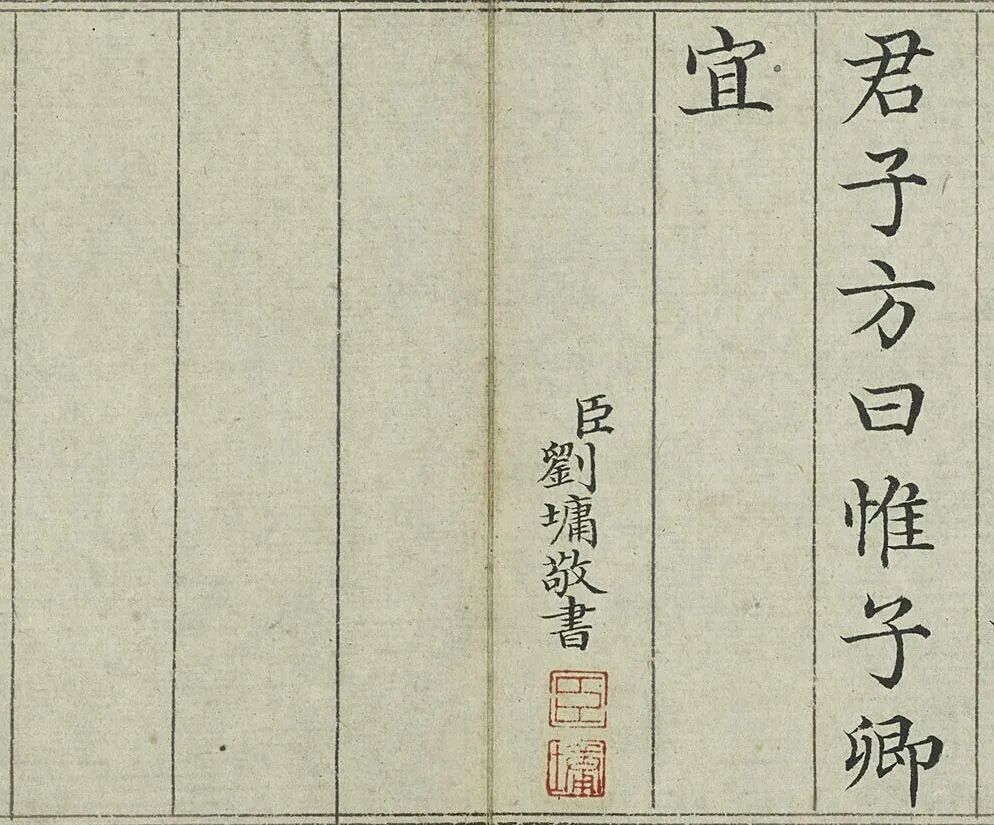 君子方曰惟子卿
宜
臣劉墉敬書
臣
墉